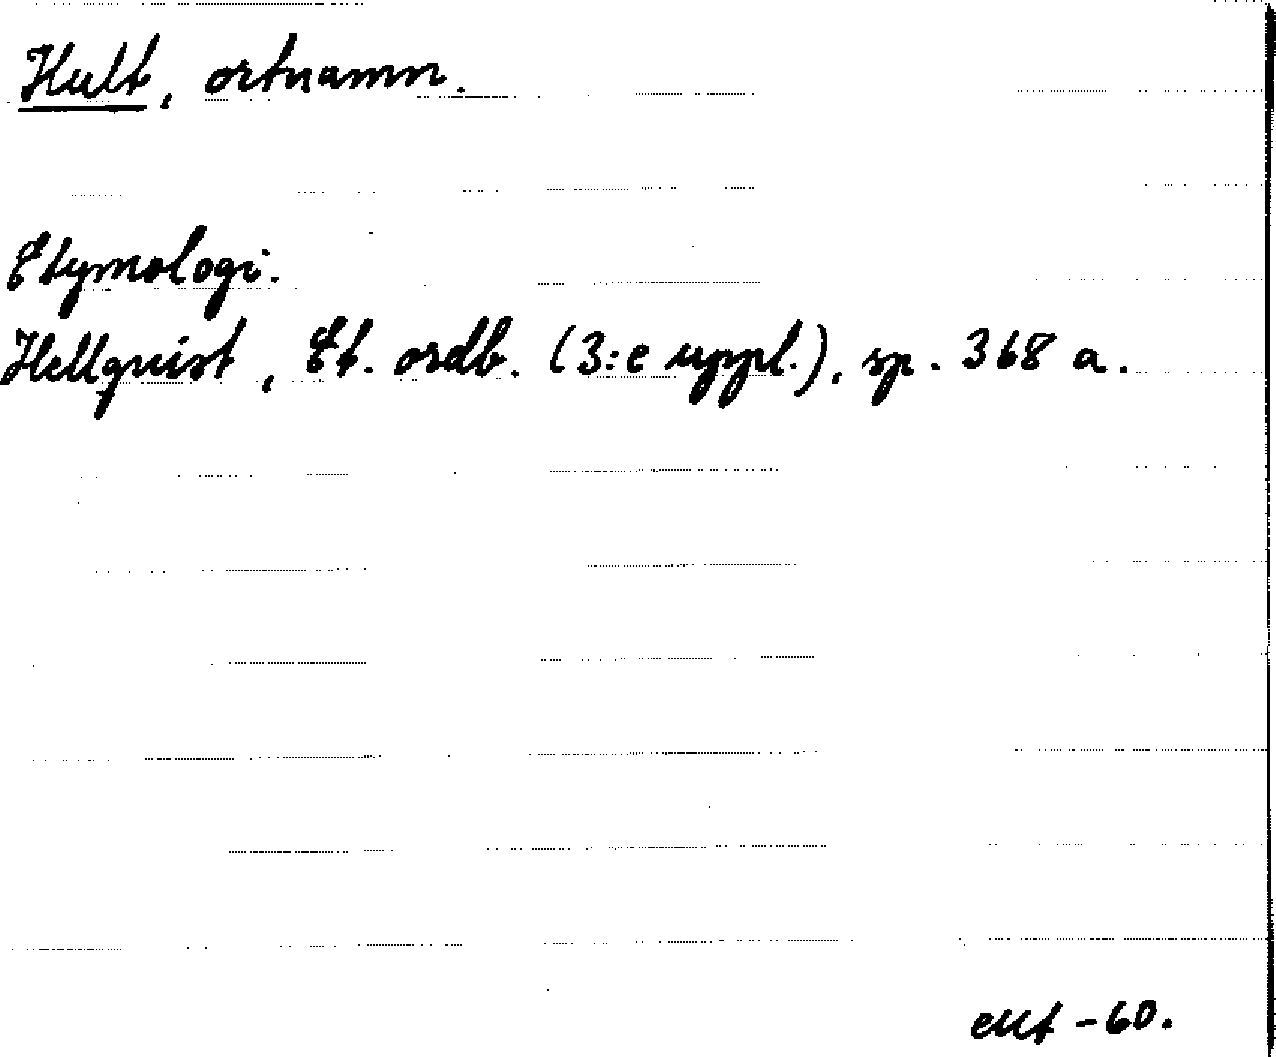 Hult, ortnamn.
Etymologi.
Hellquist, Et. ordb. (3:e uppl.), sp. 368 a.
-60.